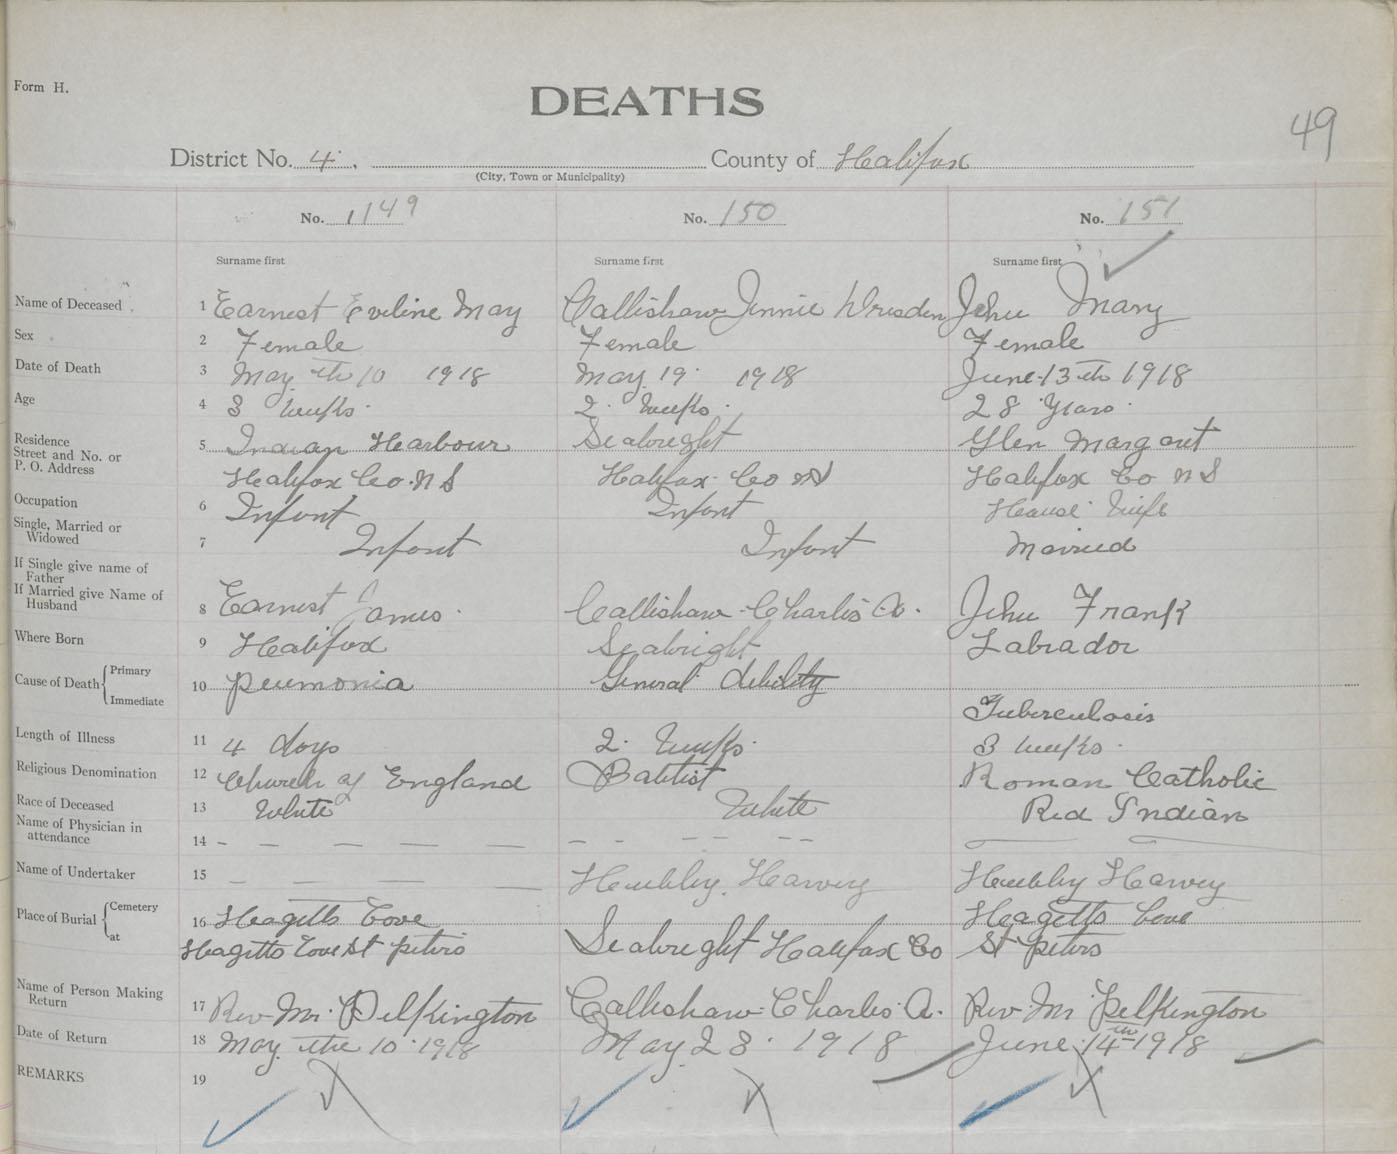 Form H.
DEATHS
49
District No. 4. County of Halifax
(City, Town or Municipality)
No. 149 No. 150 No. 151
Surname first Surname first Surname first
Name of Deceased 1 Earnest Eveline May Callishaw Jennie Dresden John Mary
Sex 2 Female Female Female
Date of Death 3 May th 10 1918 May 19 1918 June 13th 1918
Age 4 3 weeks. 2. weeks. 28 Years.
Residence Street and No. or P. O. Address 5 Indian Harbour Seabright Glen Margaret
Halifax Co. N S Halifax Co NS Halifax Co N S
Occupation 6 Infant Infant House Wife
Single, Married or Widowed 7 Infant Infant Married
If Single give name of Father
If Married give Name of Husband 8 Earnest James. Callishaw Charlis A. John Frank
Where Born 9 Halifax Seabright Labrador
Cause of Death { Primary 10 peumonia General debility
Immediate Tuberculosis
Length of Illness 11 4 days 2. weeks. 3 weeks.
Religious Denomination 12 Church of England Babtist Roman Catholic
Race of Deceased 13 White White Red Indian
Name of Physician in attendance 14 - — — — — - - — — — —
Name of Undertaker 15 — — — — Hubley Harvey Hubley Harvey
Place of Burial { Cemetery 16 Hagetts Cove Hagetts Cove
at Hagetts Cove St peters Seabright Halifax Co St peters
Name of Person Making Return 17 Rev Mr. Pelkington Callishaw Charlis A. Rev Mr Pelkington
Date of Return 18 May the 10 1918 May 28. 1918 June 14th 1918
REMARKS 19